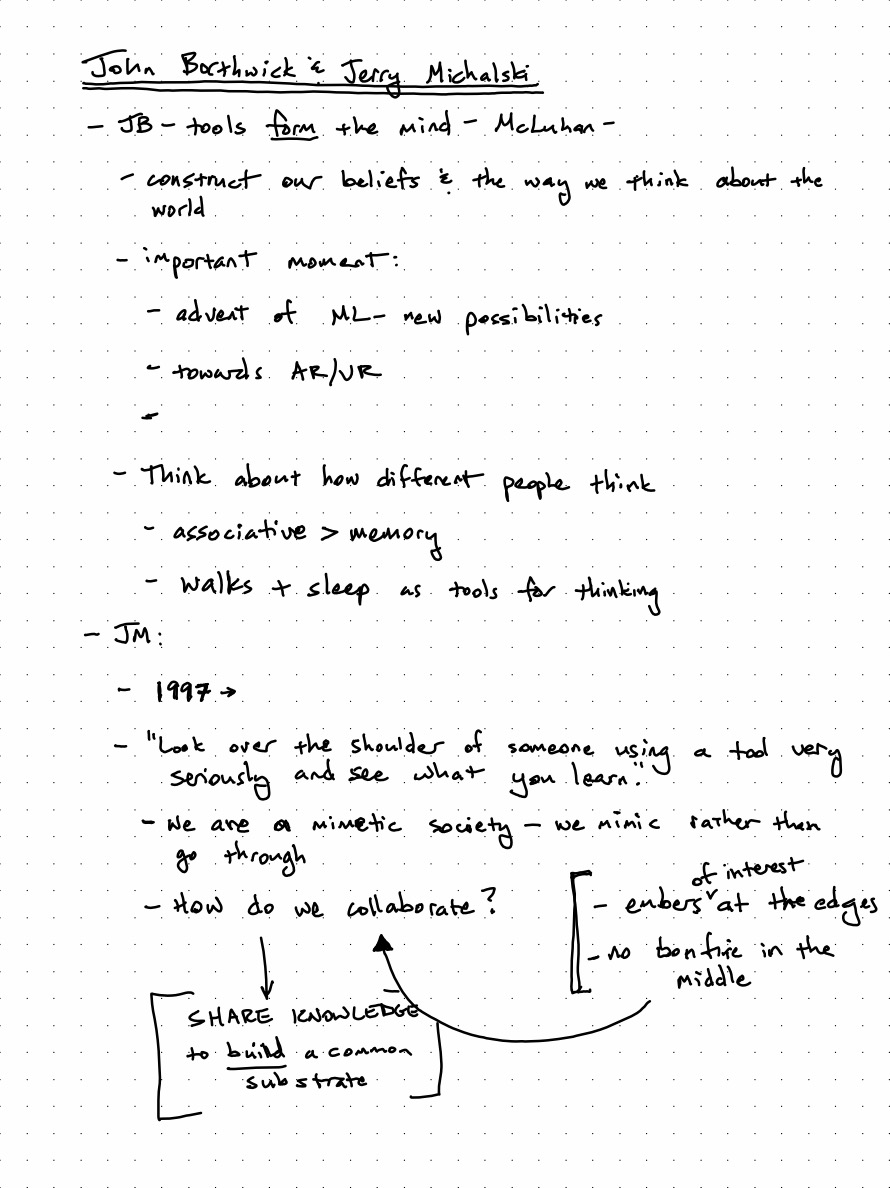 John Borthwick & Jerry Michalski
- JB - tools form the mind - McLuhan -
- construct our beliefs & the way we think about the
world
- important moment:
- advent of ML - new possibilities
- towards AR/VR
-
- Think about how different people think
- associative > memory
- walks + sleep as tools for thinking
- JM:
- 1997 →
- "Look over the shoulder of someone using a tool very
seriously and see what you learn."
- We are a mimetic society - we mimic rather than
go through
- How do we collaborate?
of interest
- embers ˅ at the edges
- no bonfire in the
middle
SHARE KNOWLEDGE
to build a common
substrate